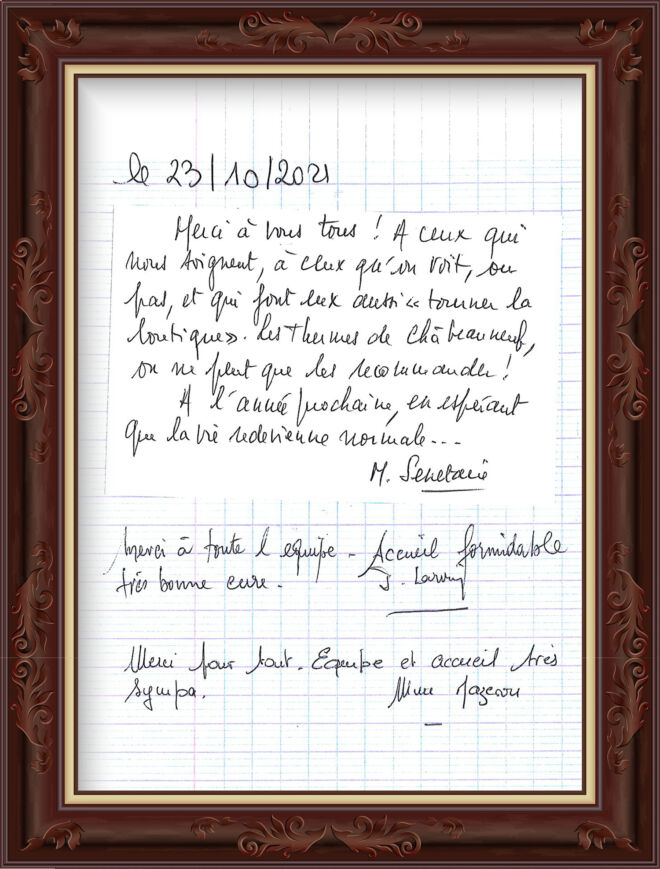 le 23/10/2021
Merci à vous tous ! A ceux qui
nous soignent, à ceux qu'on voit, ou
pas, et qui font eux aussi « tourner la
boutique ». Les Thermes de Châteauneuf,
on ne peut que les recommander !
A l'année prochaine, en espérant
que la vie redevienne normale...
M. Senetaire
Merci à toute l'equipe - Accueil formidable
très bonne cure.
J.
Merci pour tout. Equipe et accueil très
sympa.
Mme Mazeron